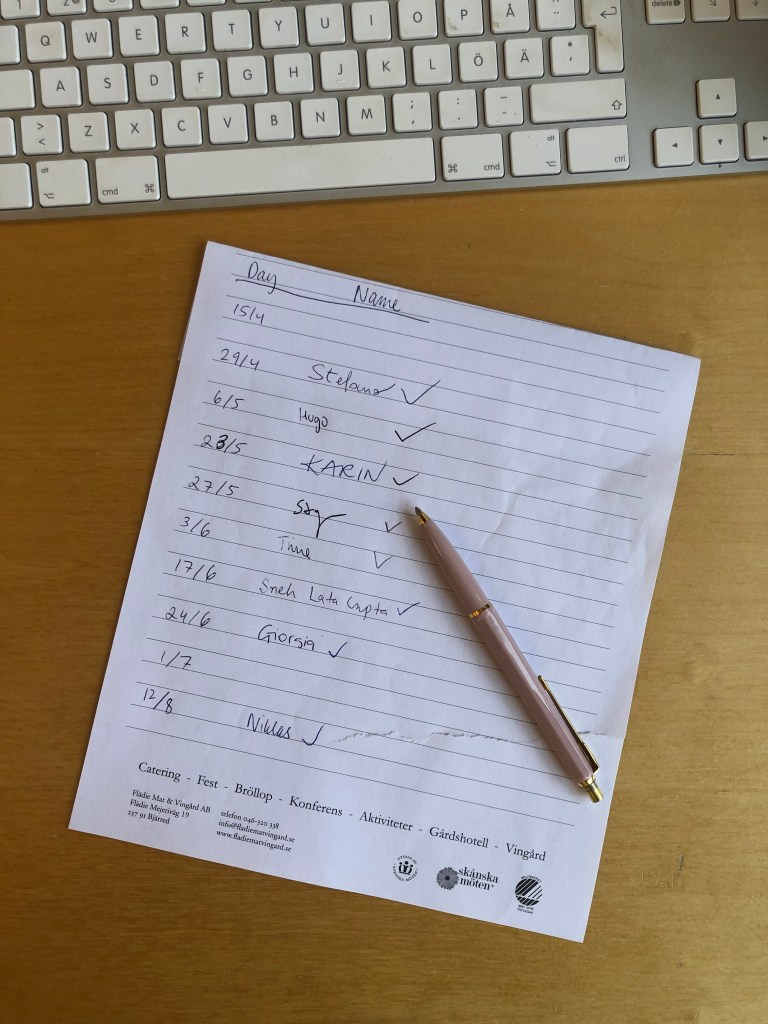 Q W E R T Y U I O P Å
A S D F G H J K L Ö Ä
Z X C V B N M
alt cmd cmd alt ctrl
delete
Day Name
15/4
29/4 Stefano ✓
6/5 Hugo ✓
23/5 KARIN ✓
27/5 ✓
3/6 Tine ✓
17/6 Sneh Lata Gupta ✓
24/6 Giorgia ✓
1/7
12/8 Niklas ✓
Catering - Fest - Bröllop - Konferens - Aktiviteter - Gårdshotell - Vingård
Flädie Mat & Vingård AB
Flädie Mejeriväg 19
237 91 Bjärred
telefon 046-320 338
info@fladiematvingard.se
www.fladiematvingard.se
skånska
möten